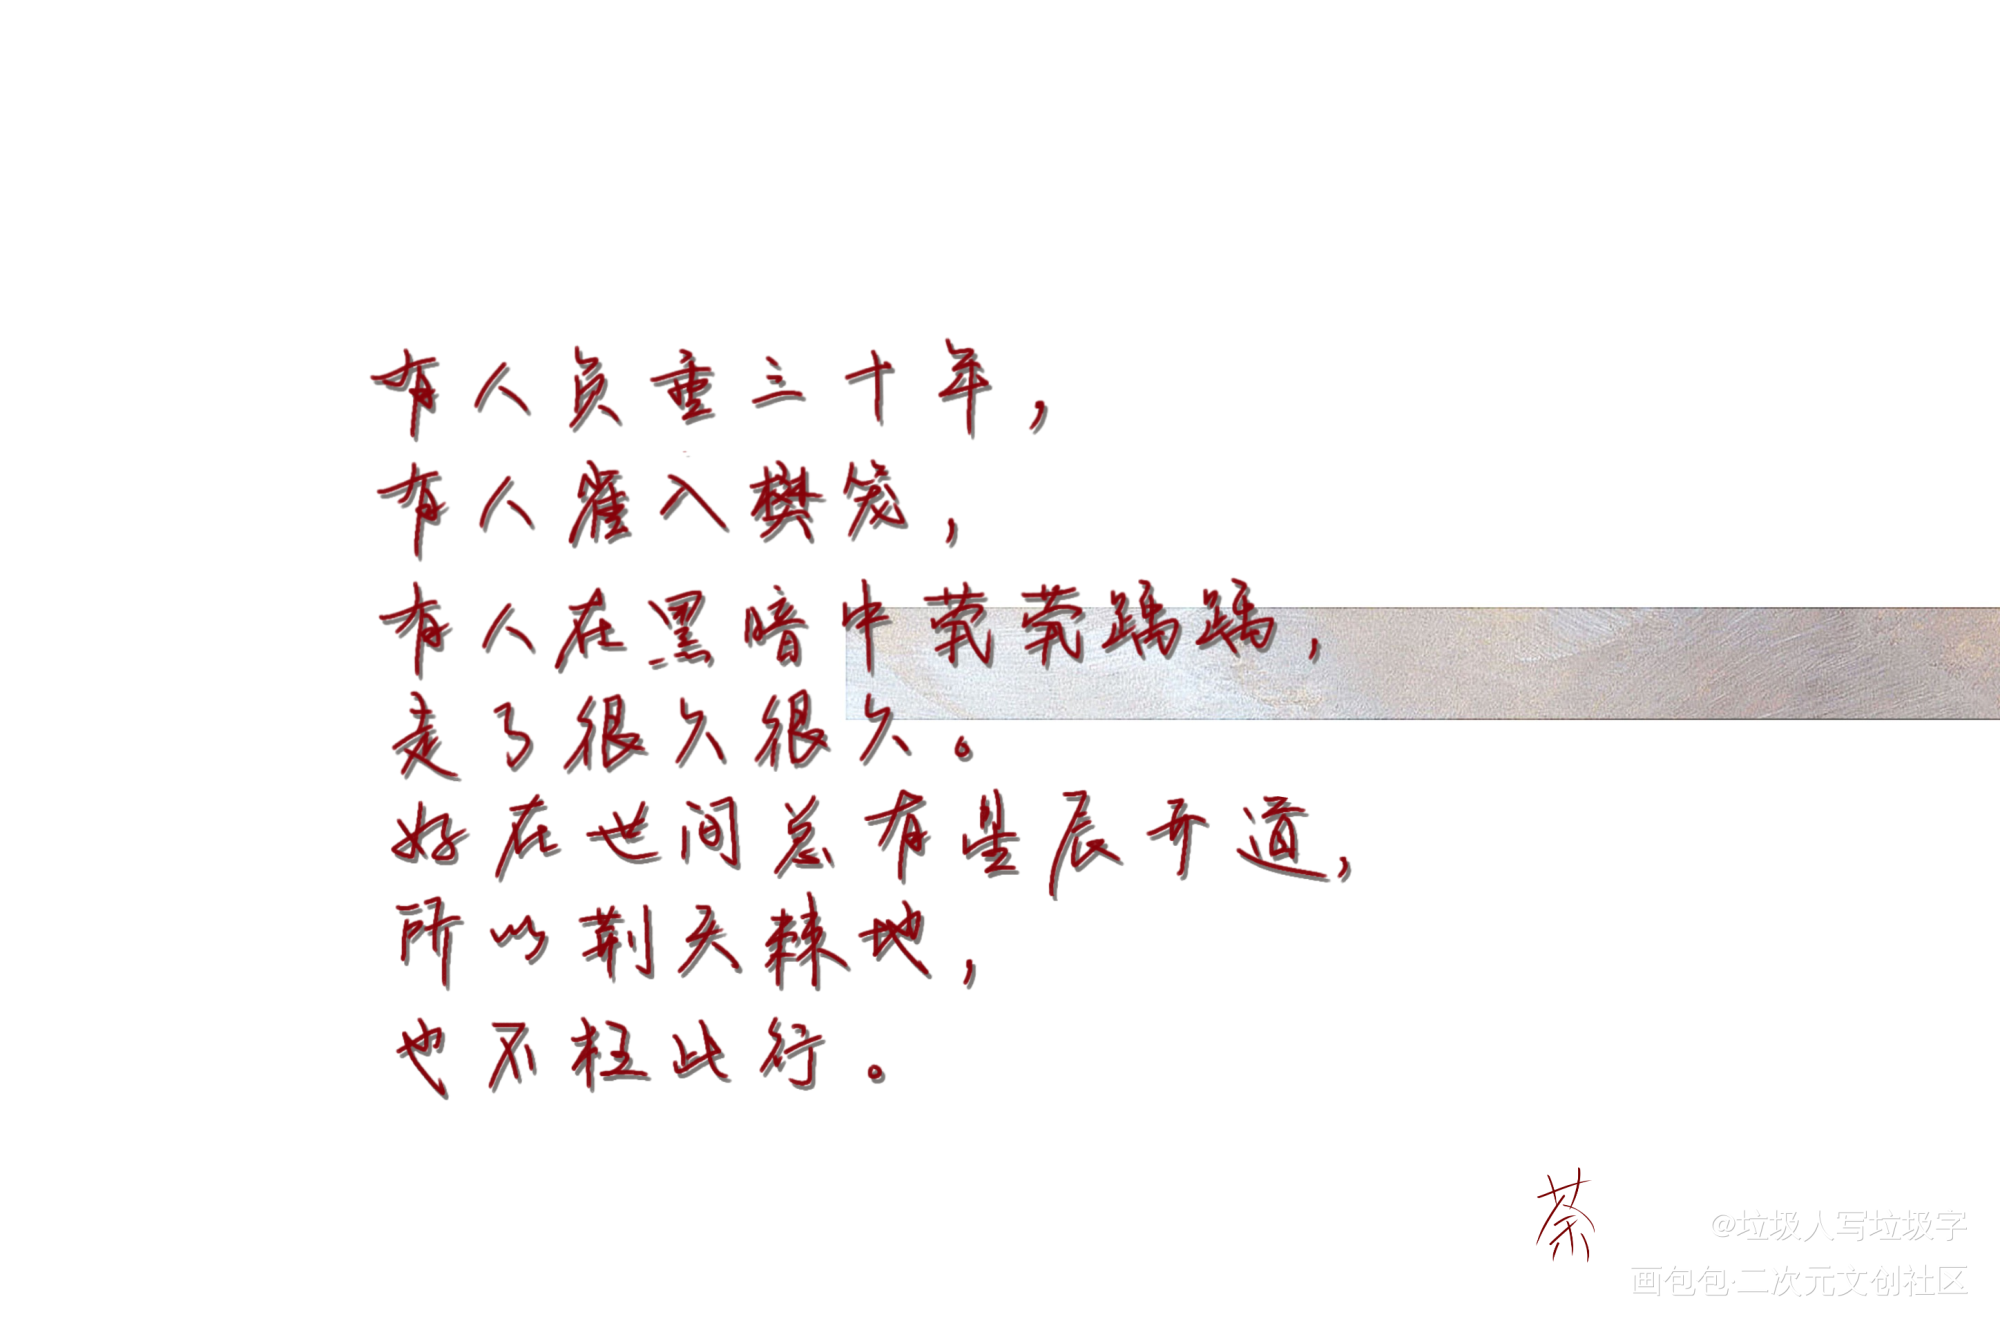 有人负重三十年，
有人雀入樊笼，
有人在黑暗中茕茕踽踽，
走了很久很久。
好在世间总有星辰开道，
所以荆天棘地，
也不枉此行。
荼
@垃圾人写垃圾字
画包包·二次元文创社区